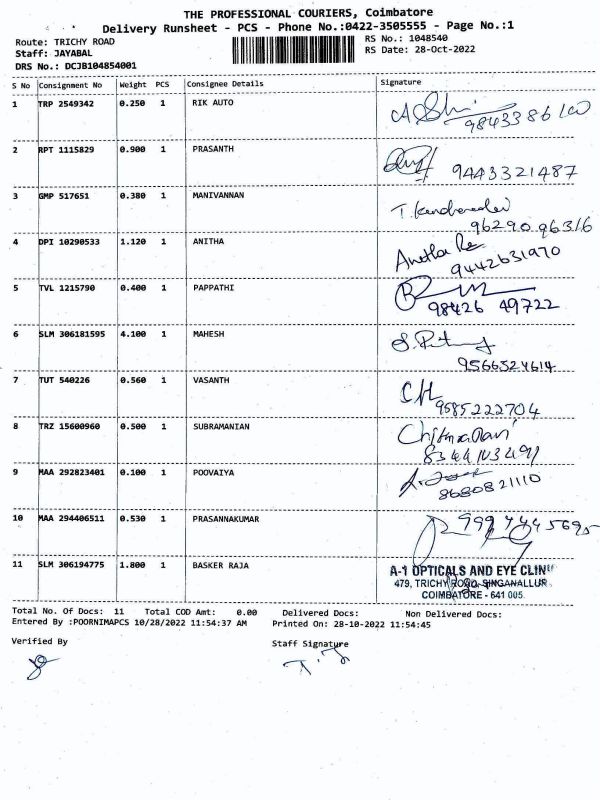 THE PROFESSIONAL COURIERS, Coimbatore
Delivery Runsheet - PCS - Phone No.:0422-3505555 - Page No.:1
Route: TRICHY ROAD
RS No.: 1048540
Staff: JAYABAL
RS Date: 28-Oct-2022
DRS No.: DCJB104854001
S No Consignment No Weight PCS Consignee Details Signature
1 TRP 2549342 0.250 1 RIK AUTO
2 RPT 1115829 0.900 1 PRASANTH
9443321487
3 GMP 517651 0.380 1 MANIVANNAN
96290 96316
4 DPI 10290533 1.120 1 ANITHA
Anetha
9442631970
5 TVL 1215790 0.400 1 PAPPATHI
98426 49722
6 SLM 306181595 4.100 1 MAHESH
9566524614
7 TUT 540226 0.560 1 VASANTH
9585222704
8 TRZ 15600960 0.500 1 SUBRAMANIAN
9 MAA 292823401 0.100 1 POOVAIYA
8680821110
10 MAA 294406511 0.530 1 PRASANNAKUMAR
11 SLM 306194775 1.800 1 BASKER RAJA
A-1 OPTICALS AND EYE CLINI
479, TRICHY ROAD, SINGANALLUR
COIMBATORE - 641 005.
Total No. Of Docs: 11 Total COD Amt: 0.00 Delivered Docs: Non Delivered Docs:
Entered By :POORNIMAPCS 10/28/2022 11:54:37 AM Printed On: 28-10-2022 11:54:45
Verified By
Staff Signature